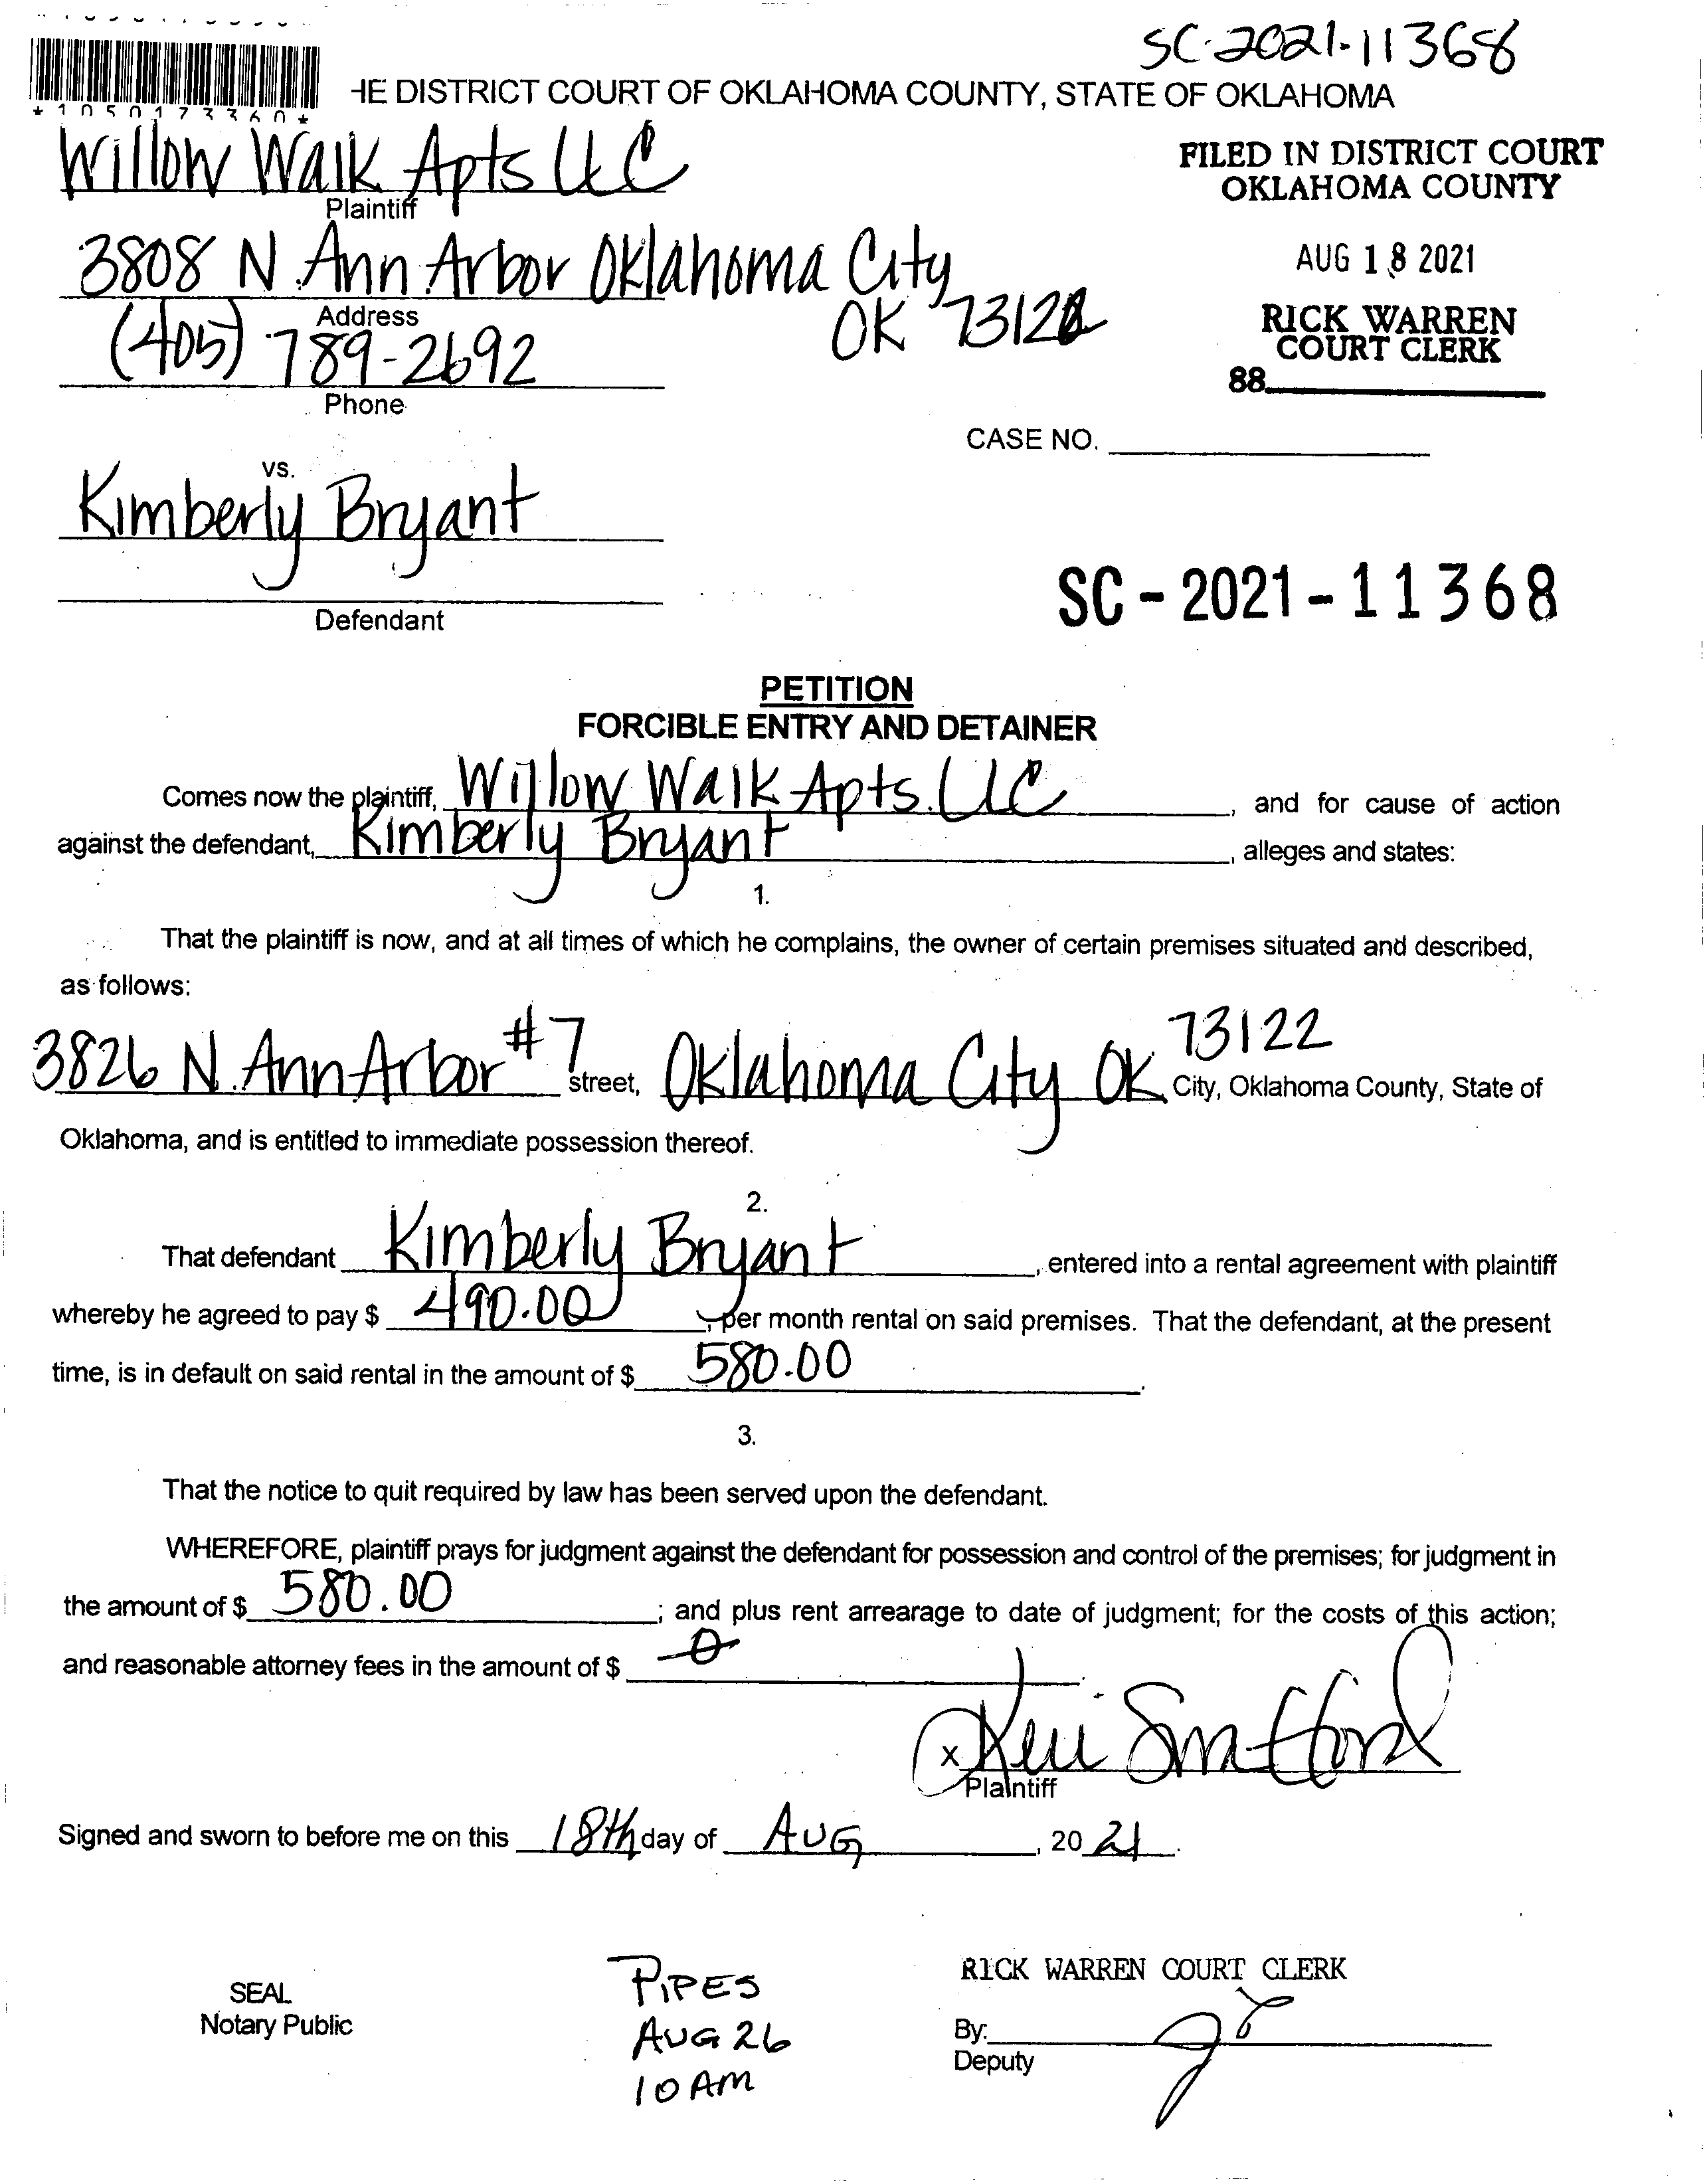 SC-2021-11368
*1050173360*
HE DISTRICT COURT OF OKLAHOMA COUNTY, STATE OF OKLAHOMA
Willow Walk Apts LLC
Plaintiff
FILED IN DISTRICT COURT
OKLAHOMA COUNTY
3808 N. Ann Arbor Oklahoma City
OK 73122
Address
AUG 18 2021
(405) 789-2692
Phone
RICK WARREN
COURT CLERK
88
CASE NO.
vs.
Kimberly Bryant
Defendant
SC-2021-11368
PETITION
FORCIBLE ENTRY AND DETAINER
Comes now the plaintiff, Willow Walk Apts. LLC, and for cause of action
against the defendant, Kimberly Bryant, alleges and states:
1.
That the plaintiff is now, and at all times of which he complains, the owner of certain premises situated and described,
as follows:
3826 N. Ann Arbor #7 street, Oklahoma City OK 73122 City, Oklahoma County, State of
Oklahoma, and is entitled to immediate possession thereof.
2.
That defendant Kimberly Bryant, entered into a rental agreement with plaintiff
whereby he agreed to pay $ 490.00, per month rental on said premises. That the defendant, at the present
time, is in default on said rental in the amount of $ 580.00.
3.
That the notice to quit required by law has been served upon the defendant.
WHEREFORE, plaintiff prays for judgment against the defendant for possession and control of the premises; for judgment in
the amount of $ 580.00; and plus rent arrearage to date of judgment; for the costs of this action;
and reasonable attorney fees in the amount of $ 0.
x
Plaintiff
Signed and sworn to before me on this 18th day of AUG, 2021.
SEAL
Notary Public
PIPES
AUG 26
10 AM
RICK WARREN COURT CLERK
By:
Deputy